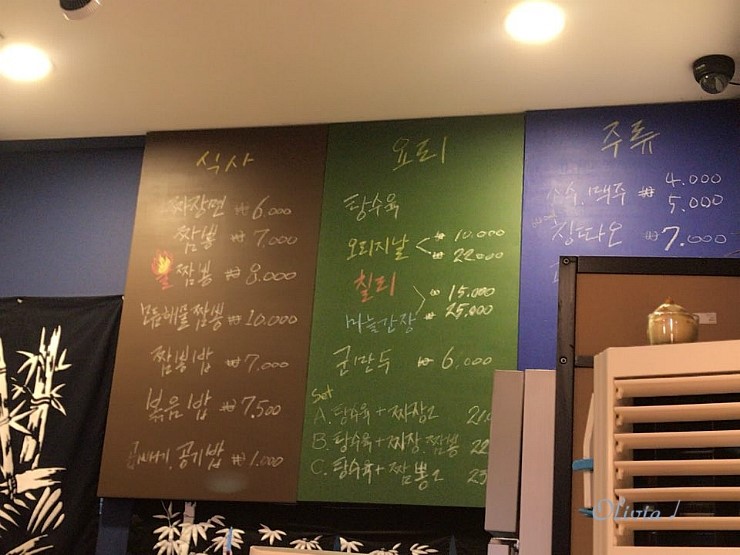 식사
짜장면 ₩6.000
짬뽕 ₩7.000
불짬뽕 ₩8.000
모듬해물짬뽕 ₩10.000
짬뽕밥 ₩7.000
볶음밥 ₩7,500
곱빼기, 공기밥 ₩1.000
요리
탕수육
오리지날 < ₩10.000
₩22000
칠리 > ₩15.000
마늘간장 ₩25.000
군만두 ₩6,000
Set
A. 탕수육+짜장2
B. 탕수육+짜장.짬뽕
C. 탕수육+짬뽕2
주류
소주.맥주 ₩4.000
5.000
칭따오 ₩7.000
Olivia